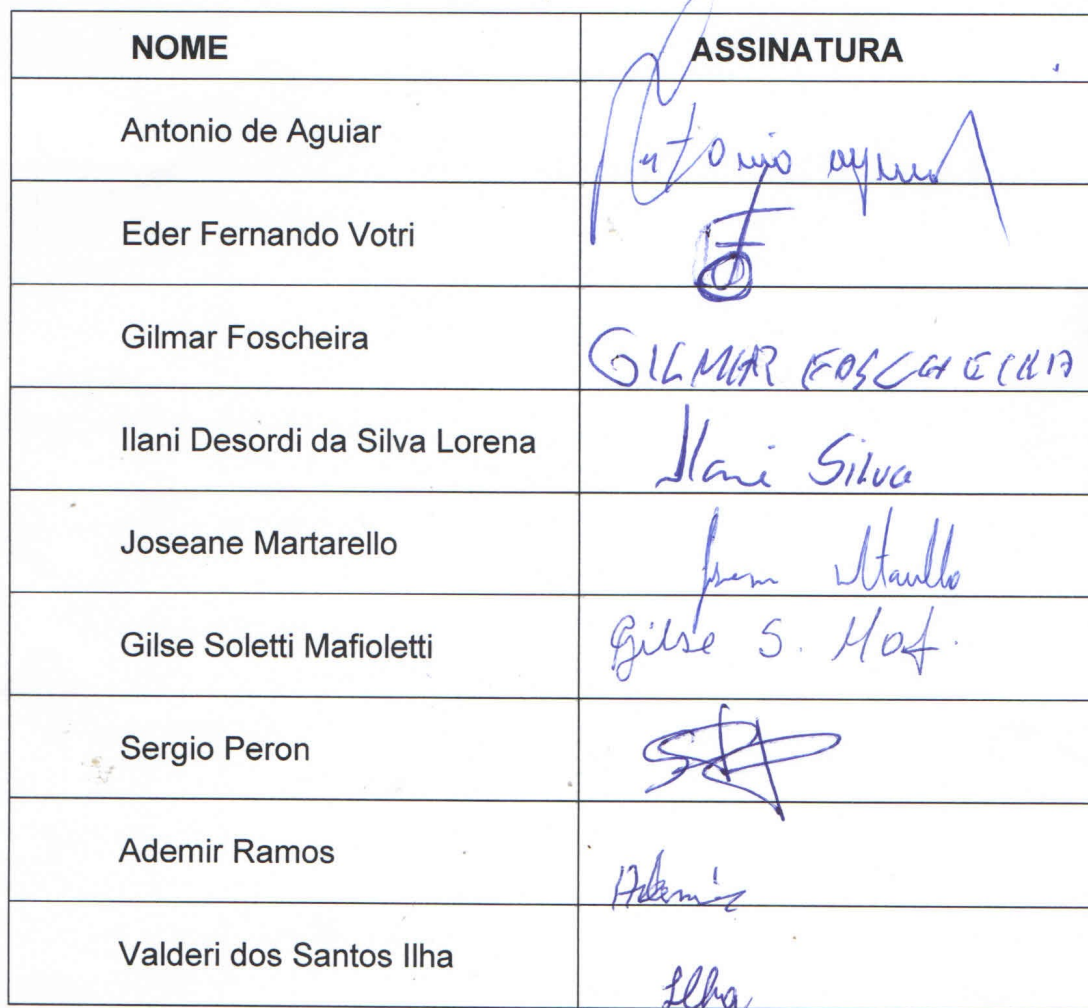 NOME ASSINATURA
Antonio de Aguiar Antonio
Eder Fernando Votri
Gilmar Foscheira GILMAR FOSCHEIRA
Ilani Desordi da Silva Lorena Ilani Silva
Joseane Martarello
Gilse Soletti Mafioletti Gilse S. Maf.
Sergio Peron
Ademir Ramos Ademir
Valderi dos Santos Ilha Ilha